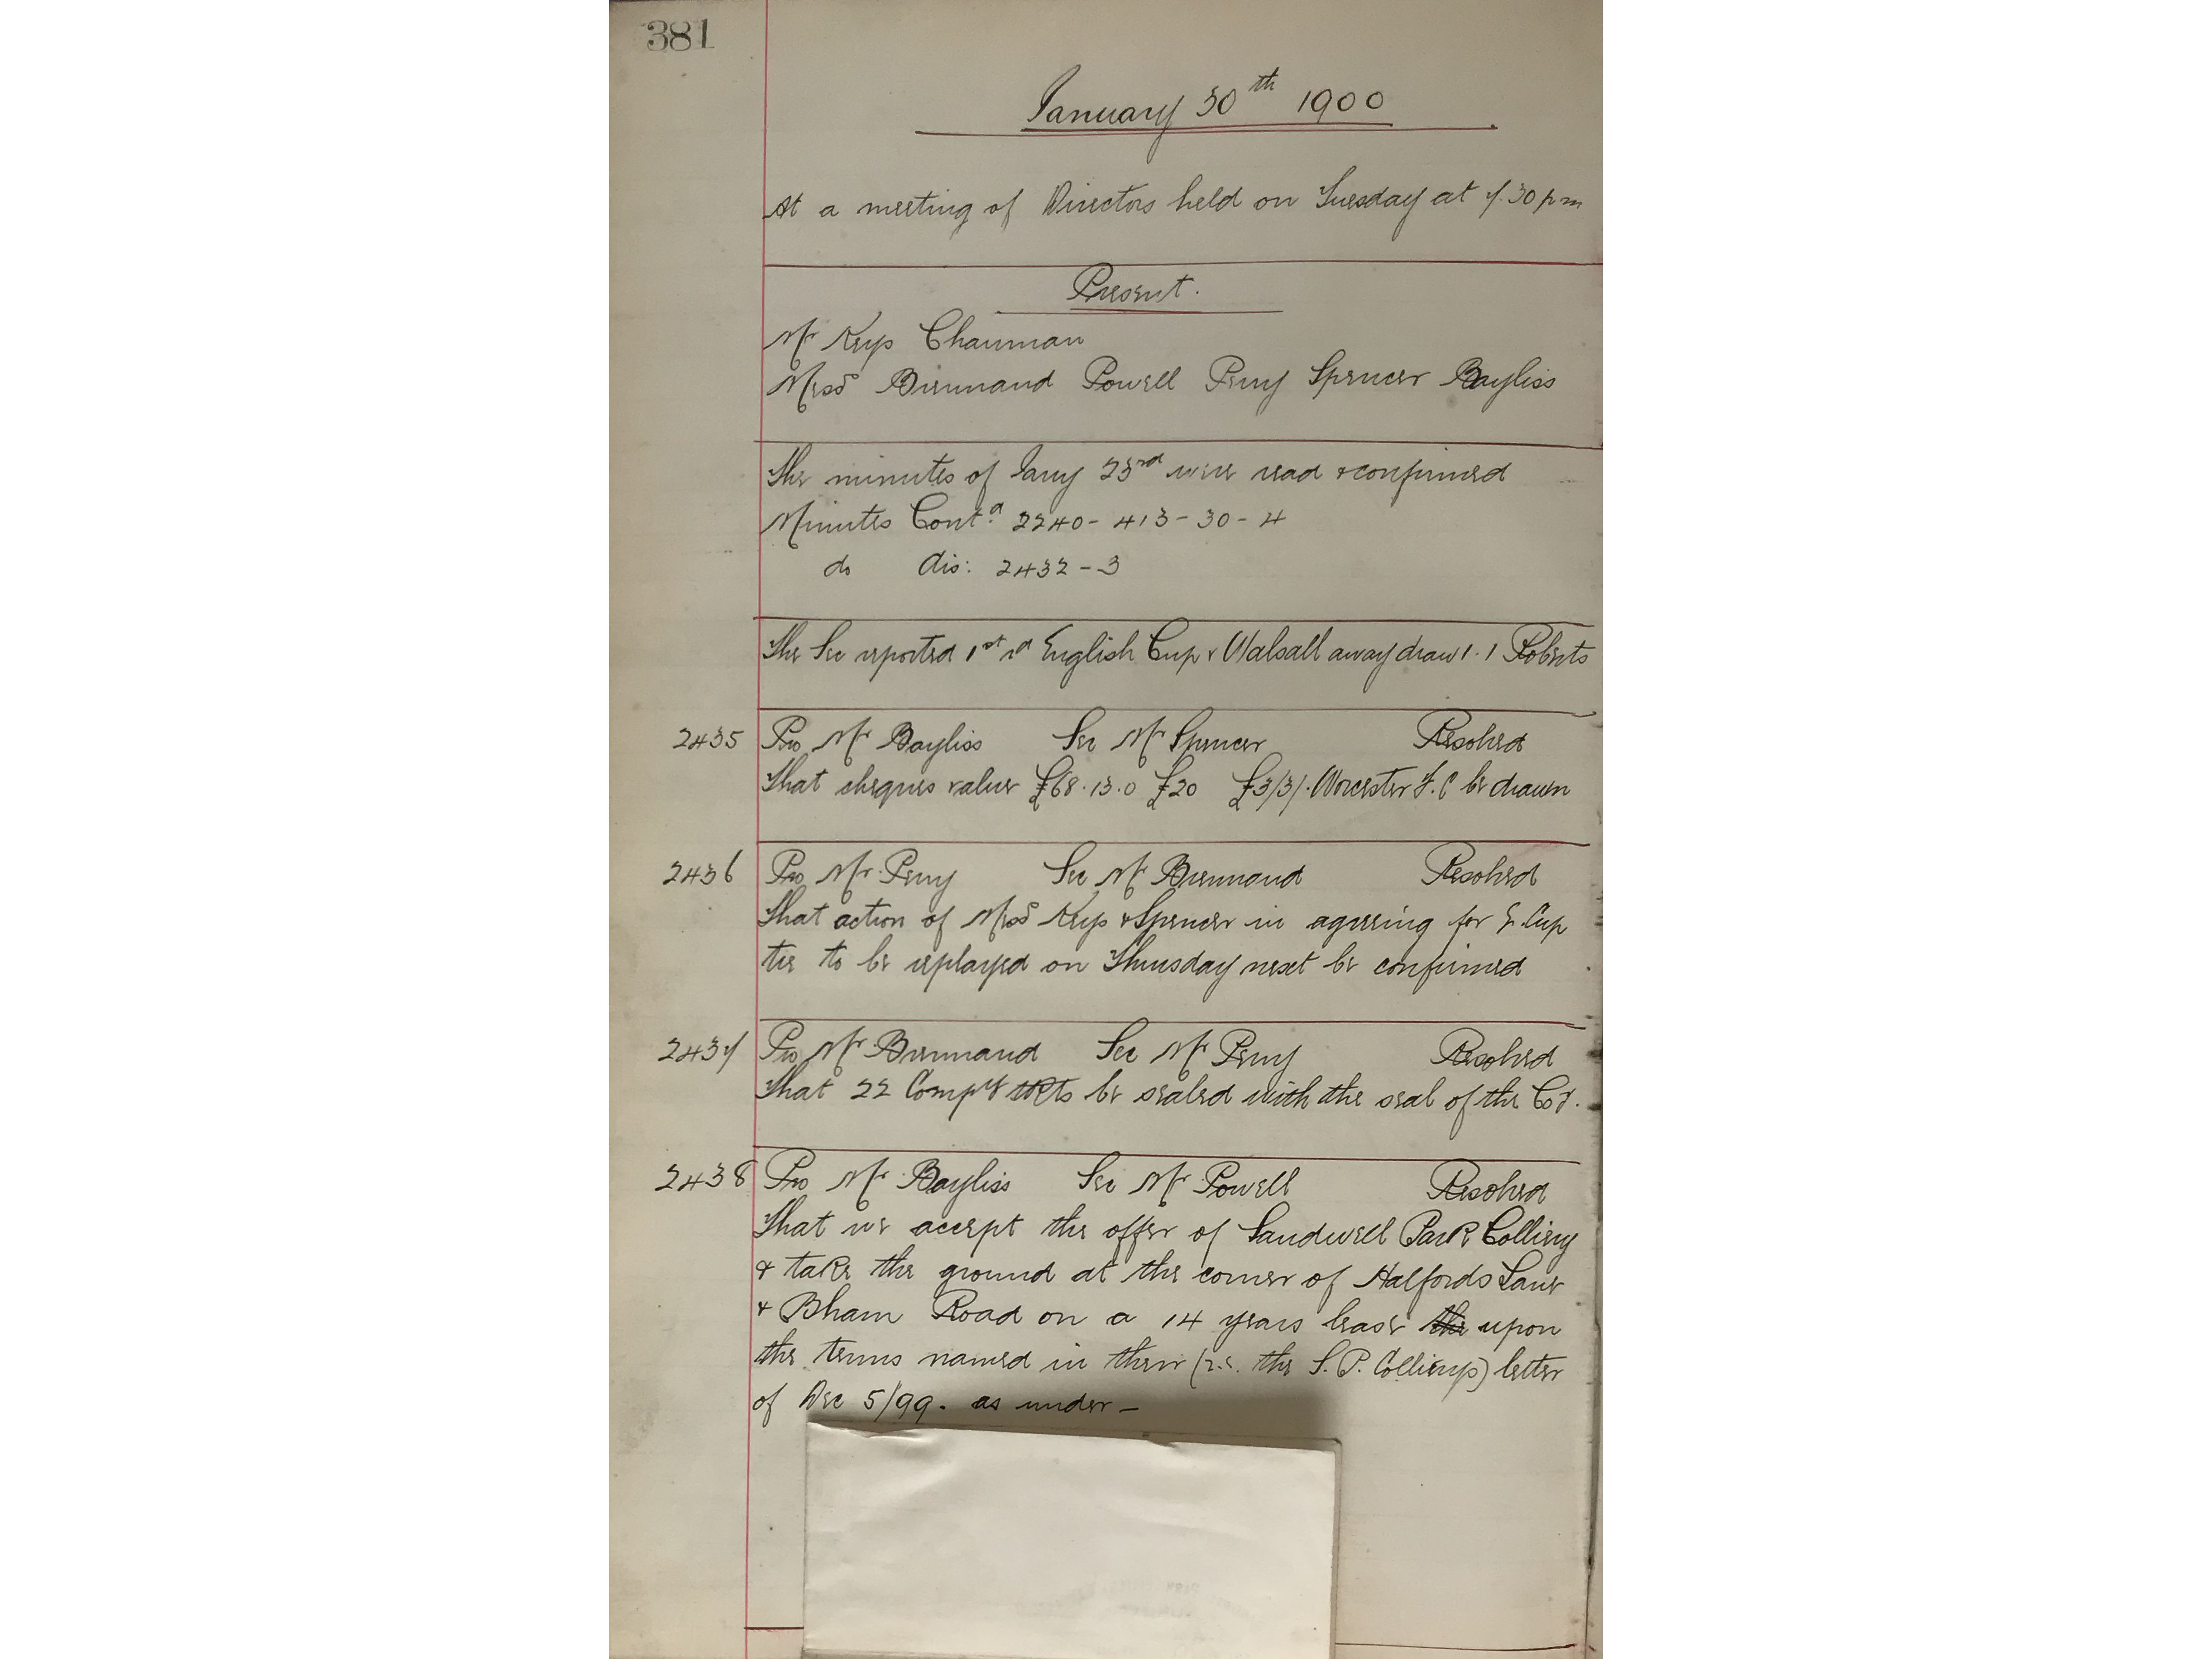 381
January 30th 1900
At a meeting of Directors held on Tuesday at 7.30 pm
Present.
Mr Keys Chairman
Messrs Brennand Powell Perry Spencer Bayliss
The minutes of Jany 23rd were read & confirmed
Minutes Contd 2240 - 413 - 30 - 4
do dis: 2432 - 3
The Sec reported 1st rd English Cup v Walsall away draw 1.1 Roberts
2435 Pro Mr Bayliss Sec Mr Spencer Resolved
That cheques value £68.13.0 £20 £3/3/. Worcester F.C be drawn
2436 Pro Mr. Perry Sec Mr Brennand Resolved
That action of Messrs Keys & Spencer in agreeing for E. Cup
tie to be replayed on Thursday next be confirmed
2437 Pro Mr Brennand Sec Mr Perry Resolved
That 22 Compy tkts be sealed with the seal of the Coy.
2438 Pro Mr. Bayliss Sec Mr Powell Resolved
That we accept the offer of Sandwell Park Colliery
& take the ground at the corner of Halfords Lane
& Bham Road on a 14 years lease upon
the terms named in their (i.e. the S.P. Collierys) letter
of Dec 5/99. as under -